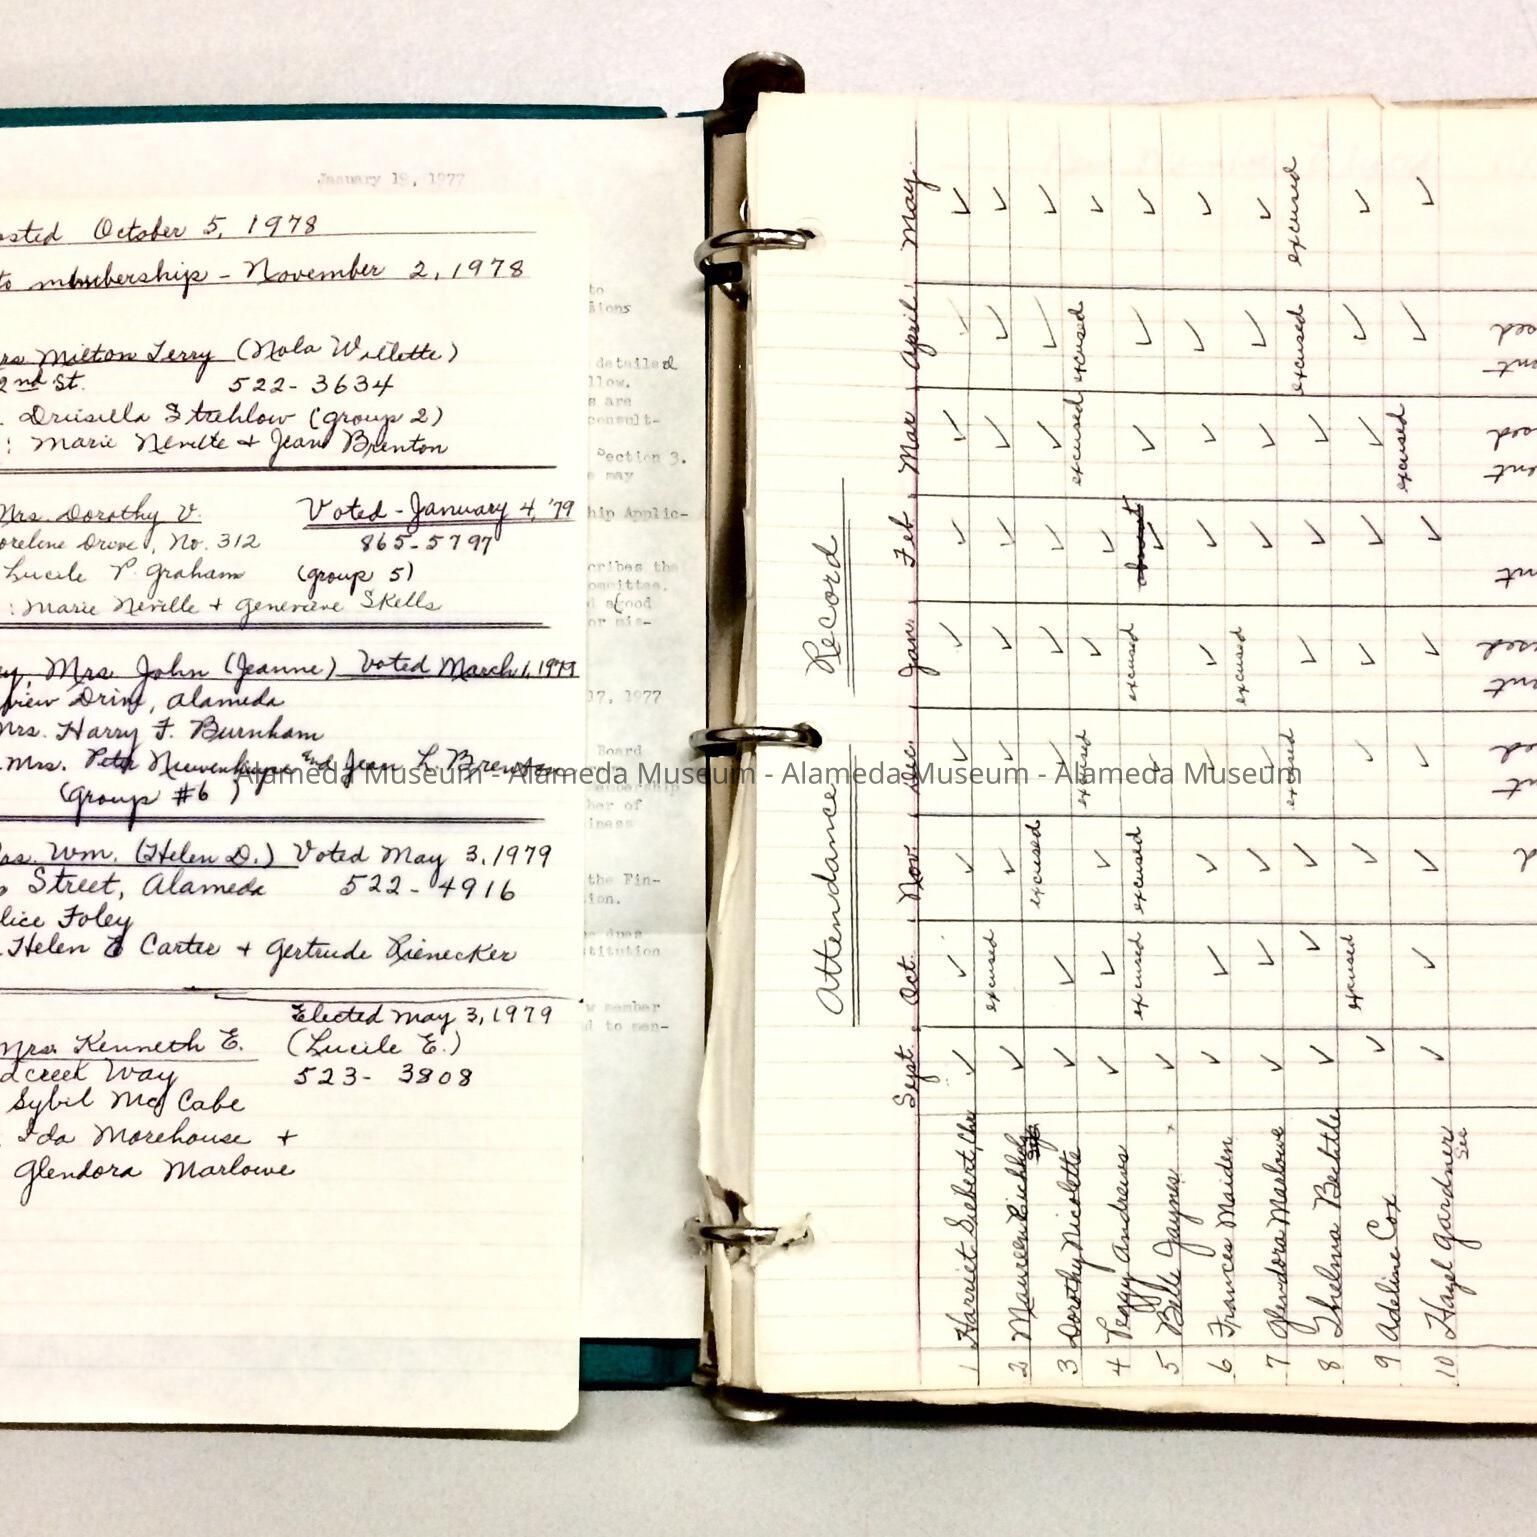 January 19, 1977
October 5, 1978
to membership - November 2, 1978
Milton Terry (Nola Willette)
2nd St. 522-3634
Drusilla Strehlow (group 2)
: Marie Neville + Jean Brenton
Mrs. Dorothy V. Voted - January 4, '79
Drive, No. 312 865-5797
Lucile P. Graham (group 5)
: Marie Neville + Genevieve Skells
Mrs. John (Jeanne) Voted March 1, 1979
Drive, Alameda
Mrs. Harry F. Burnham
Mrs. and Jean L. Brenton
(group #6)
Wm. (Helen D.) Voted May 3, 1979
Street, Alameda 522-4916
Foley
Helen E Carter + Gertrude Rienecker
Elected May 3, 1979
Mrs. Kenneth E. (Lucile E.)
Way 523-3808
Sybil McCabe
Ida Morehouse +
Glendora Marlowe
to
detailed
llow.
s are
consult-
Section 3.
may
cribes the
or mis-
17, 1977
Board
her of
iness
the Fin-
ion.
w member
d to men-
Attendance Record
Sept. Oct. Nov. Dec. Jan. Feb. Mar April May
1 Harriet Siebert, Chr ✓ ✓ ✓ ✓ ✓ ✓ ✓ ✓ ✓
2 Maureen ✓ excused ✓ ✓ ✓ ✓ ✓ ✓ ✓
3 Dorothy Nicolette ✓ ✓ excused ✓ ✓ ✓ ✓ ✓ ✓
4 Peggy Andrews ✓ ✓ ✓ excused ✓ ✓ excused excused ✓
5 Belle Jaynes ✓ excused excused ✓ excused absent ✓ ✓ ✓ ✓
6 Frances Maiden ✓ ✓ ✓ ✓ ✓ ✓ ✓ ✓ ✓
7 Glendora Marlowe ✓ ✓ ✓ ✓ excused ✓ ✓ ✓ ✓
8 Thelma Bechtle ✓ ✓ ✓ excused ✓ ✓ ✓ excused excused
9 Adeline Cox ✓ excused ✓ ✓ ✓ ✓ ✓ ✓ ✓
10 Hazel Gardner Sec ✓ ✓ ✓ ✓ ✓ ✓ excused ✓ ✓
Alameda Museum - Alameda Museum - Alameda Museum - Alameda Museum